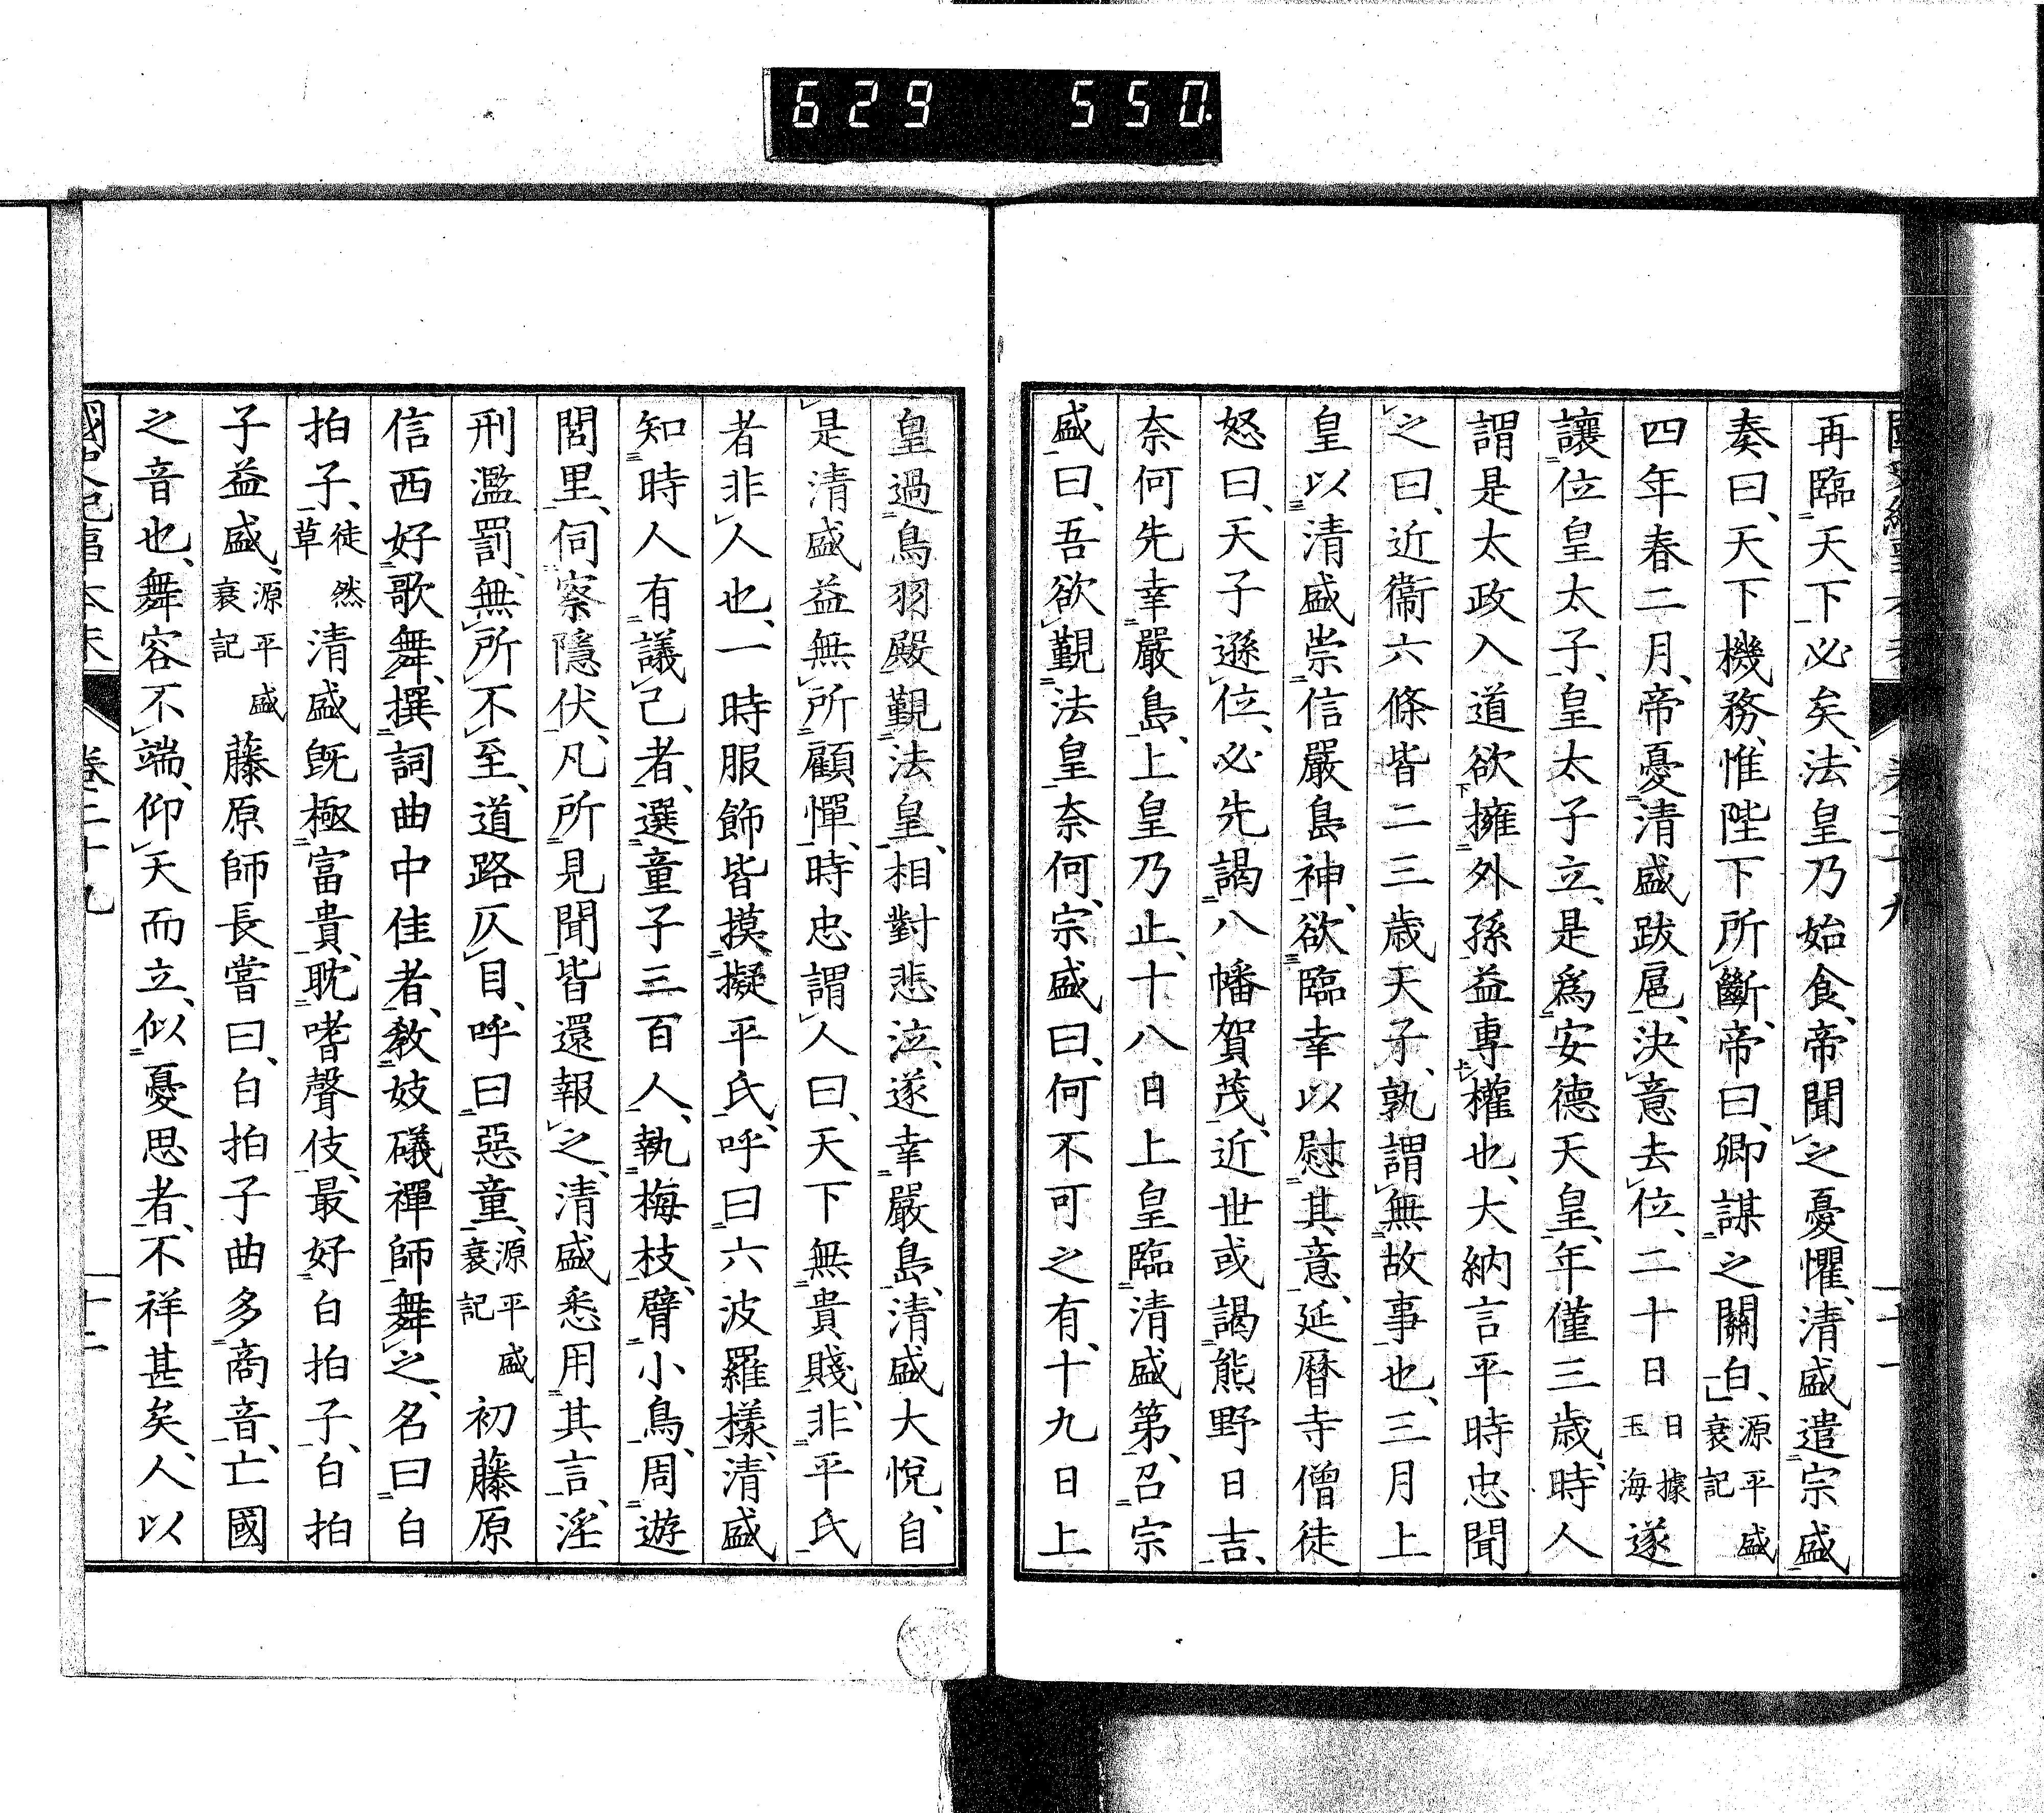 629 550.
再臨天下必矣、法皇乃始食、帝聞之憂懼、清盛遣宗盛
奏曰、天下機務、惟陛下所斷、帝曰、卿謀之關白、源平盛衰記
四年春二月、帝憂清盛跋扈、決意去位、二十日日據玉海遂
讓位皇太子、皇太子立、是爲安德天皇、年僅三歲、時人
謂是太政入道欲擁外孫益專權也、大納言平時忠聞
之曰、近衞六條皆二三歲天子、孰謂無故事也、三月上
皇以清盛崇信嚴島神、欲臨幸以慰其意、延曆寺僧徒
怒曰、天子遜位、必先謁八幡賀茂、近世或謁熊野日吉、
奈何先幸嚴島、上皇乃止、十八日上皇臨清盛第、召宗
盛曰、吾欲覲法皇奈何、宗盛曰、何不可之有、十九日上
皇過鳥羽殿覲法皇、相對悲泣、遂幸嚴島、清盛大悅、自
是清盛益無所顧憚、時忠謂人曰、天下無貴賤、非平氏
者非人也、一時服飾皆摸擬平氏、呼曰六波羅樣、清盛
知時人有議己者、選童子三百人、執梅枝、臂小鳥、周遊
閭里、伺察隱伏、凡所見聞皆還報之、清盛悉用其言、淫
刑濫罰、無所不至、道路仄目、呼曰惡童、源平盛衰記初藤原
信西好歌舞、撰詞曲中佳者、教妓礒禪師舞之、名曰白
拍子、徒然草清盛旣極富貴、耽嗜聲伎、最好白拍子、白拍
子益盛、源平盛衰記藤原師長嘗曰、白拍子曲多商音、亡國
之音也、舞容不端、仰天而立、似憂思者、不祥甚矣、人以
國史紀事本末 卷二十九 十二